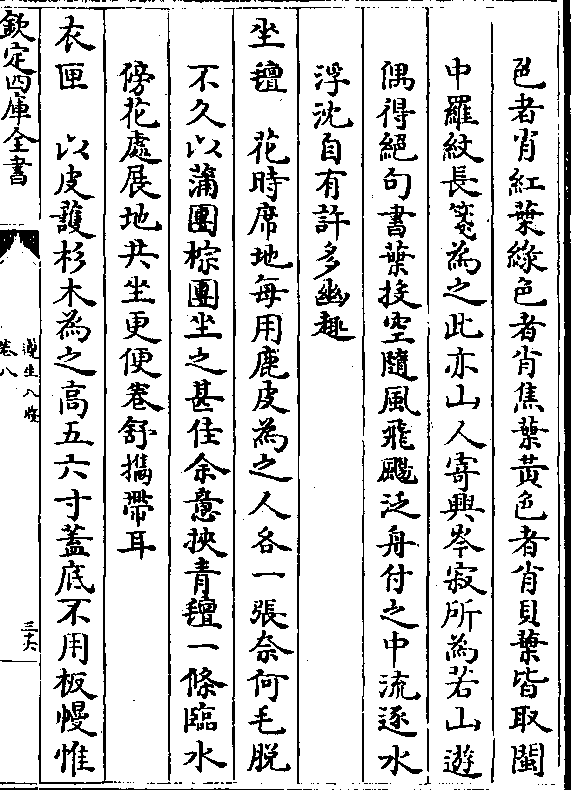 色者肖紅葉綠色者肖焦葉黃色者肖貝葉皆取閩
中羅紋長箋為之此亦山人寄興岑寂所為若山遊
偶得絕句書葉投空隨風飛颺泛舟付之中流逐水
浮沈自有許多幽趣
坐氊　花時席地每用鹿皮為之人各一張奈何毛脱
不久以蒲團棕團坐之甚佳余意挾青氊一條臨水
傍花處展地共坐更便卷舒攜帶耳
衣匣　以皮護杉木為之高五六寸蓋底不用板幔惟
欽定四庫全書
遵生八牋
卷八
三六